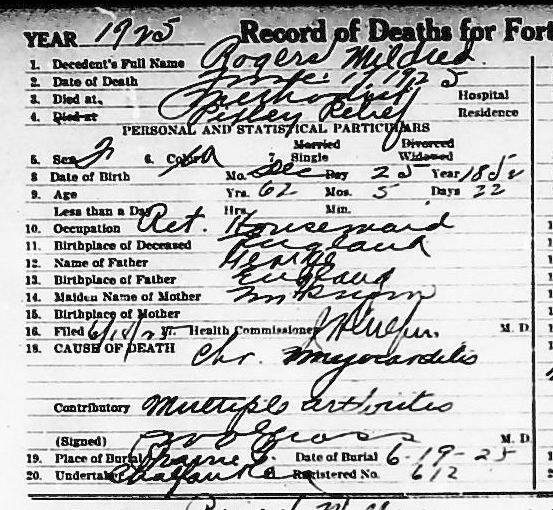 YEAR 1925 Record of Deaths for Fort
1. Decedent's Full Name Rogers Mildred
2. Date of Death June 17 1925
3. Died at Methodist Hospital
4. Died at Pixley Relief Residence
PERSONAL AND STATISTICAL PARTICULARS
Married Divorced
5. Sex F 6. Color W 7. Single Widowed
8 Date of Birth Mo. Dec Day 25 Year
9. Age Yrs. 62 Mos. 5 Days 22
Less than a Day Hrs. Min.
10. Occupation Ret. Housemaid
11. Birthplace of Deceased England
12. Name of Father George
13. Birthplace of Father England
14. Maiden Name of Mother Unknown
15. Birthplace of Mother
16. Filed 6/18/25 Health Commissioner M. D.
18. CAUSE OF DEATH Chr. Myocarditis
Contributory Multiple arthritis
(Signed) M. D.
19. Place of Burial Date of Burial 6-19-25
20. Undertaker Registered No. 612